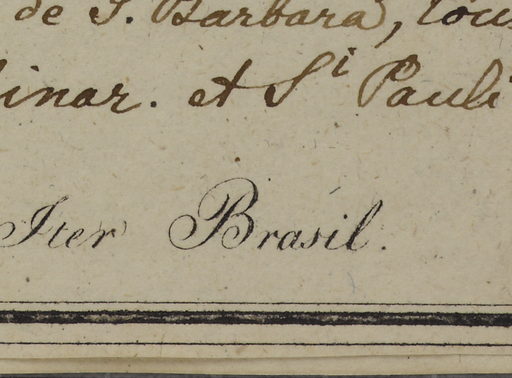 de S. Barbara, locis
inar. et Sⁱ Pauli
Iter Brasil.